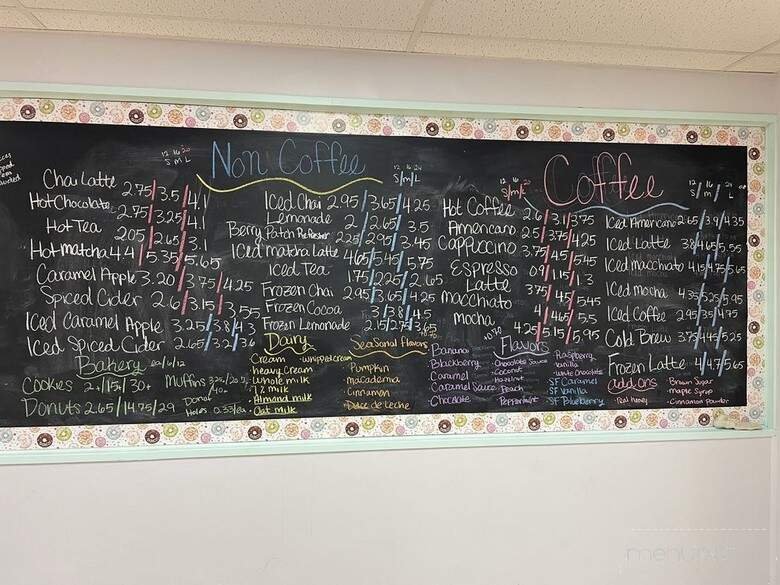 Non Coffee
12 16 20
S M L
Chai Latte 2.75/3.5/4.1
Hot Chocolate 2.75/3.25/4.1
Hot Tea 2.05/2.65/3.1
Hot matcha 4.4/5.35/5.65
Caramel Apple 3.20/3.75/4.55
Spiced Cider 2.6/3.15/3.55
Iced Caramel Apple 3.25/3.8/4.3
Iced Spiced Cider 2.65/3.2/3.6
12 16 24
S/M/L
Iced Chai 2.95/3.65/4.25
Lemonade 2/2.65/3.5
Berry Patch Refresher 2.25/2.95/3.45
Iced matcha Latte 4.65/5.45/5.75
Iced Tea 1.75/2.25/2.65
Frozen Chai 2.95/3.65/4.25
Frozen Cocoa 3/3.8/4.5
Frozen Lemonade 2.15/2.7/3.65
Bakery ea/6/12
Cookies
Donuts 2.65/14.75/29
Muffins
Donut
Holes 0.33/ea
Dairy
Cream · Whipped cream
heavy Cream
Whole milk
Almond milk
Oat milk
Seasonal Flavors
Pumpkin
macademia
Cinnamon
Dulce de Leche
Coffee
12 16 20
S/M/L
Hot Coffee 2.6/3.1/3.75
Americano 2.5/3.75/4.25
Cappuccino 3.75/4.5/5.45
Espresso .09/1.15/1.3
Latte 3.75/4.5/5.45
macchiato 4/4.65/5.5
mocha 4.25/5.15/5.95
12 16 24
S M L
Iced Americano 2.65/3.9/4.35
Iced Latte 3.8/4.65/5.55
Iced macchiato 4.15/4.75/5.65
Iced mocha 4.35/5.25/5.95
Iced Coffee 2.95/3.5/4.75
Cold Brew 3.75/4.45/5.25
Frozen Latte 4/4.7/5.65
Flavors
Banana
Blackberry
Caramel
Caramel Sauce
Chocolate
Chocolate Sauce
Coconut
Hazelnut
Peach
Peppermint
Raspberry
Vanilla
White Chocolate
SF Caramel
SF Vanilla
SF Blueberry
add ons
· real honey
Brown Sugar
maple Syrup
· Cinnamon Powder